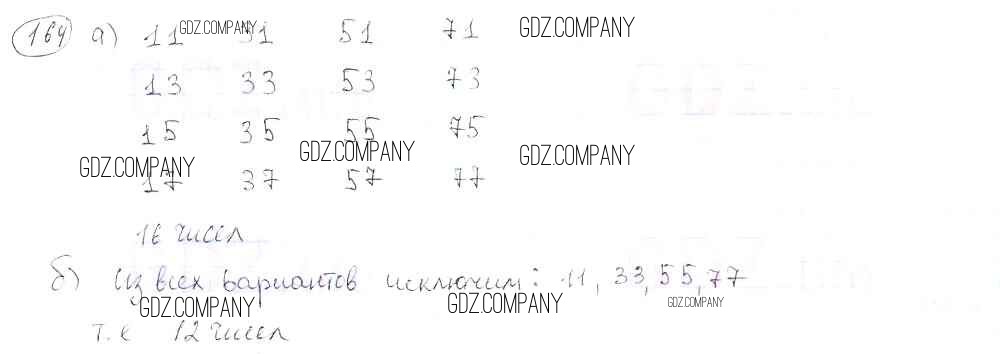 164 а) 11 GDZ.COMPANY 31 51 71 GDZ.COMPANY
13 33 53 73
15 35 55 75
GDZ.COMPANY GDZ.COMPANY GDZ.COMPANY
17 37 57 77
16 чисел
б) Из всех вариантов исключим: 11, 33, 55, 77
GDZ.COMPANY GDZ.COMPANY GDZ.COMPANY
т. е 12 чисел